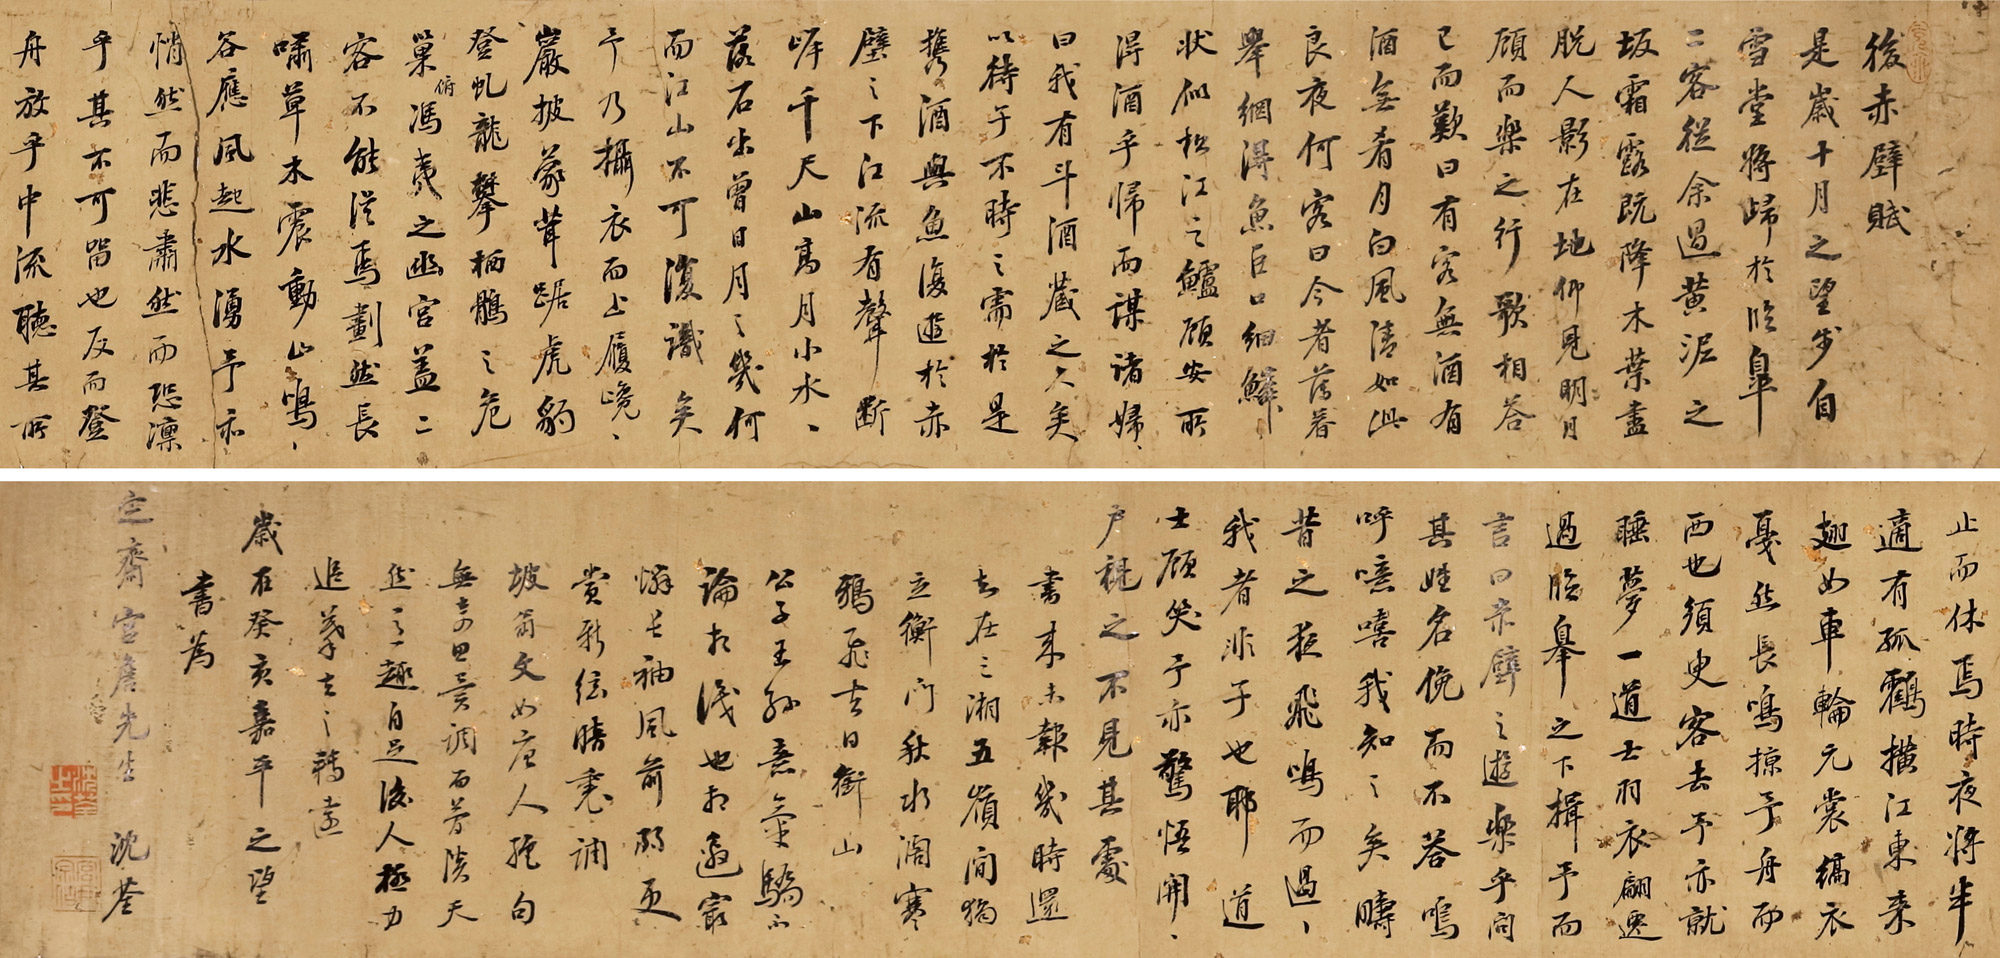 後赤壁賦
是歲十月之望步自
雪堂將歸於臨臯
二客從余過黄泥之
坂霜露既降木葉盡
脱人影在地仰見明月
顧而樂之行歌相答
已而歎曰有客無酒有
酒無肴月白風清如此
良夜何客曰今者薄暮
舉網得魚巨口細鱗
狀似松江之鱸顧安所
得酒乎歸而謀諸婦
曰我有斗酒藏之久矣
以待子不時之需於是
携酒與魚復遊於赤
壁之下江流有聲斷
岸千尺山高月小水
落石出曾日月之幾何
而江山不可復識矣
予乃攝衣而上履巉
巖披蒙茸踞虎豹
登虬龍攀栖鶻之危
巢俯馮夷之幽宮盖二
客不能從焉劃然長
嘯草木震動山鳴
谷應風起水湧予亦
悄然而悲肅然而恐凛
乎其不可留也反而登
舟放乎中流聽其所
止而休焉時夜將半
適有孤鶴横江東来
翅如車輪元裳縞衣
戛然長鳴掠予舟而
西也須臾客去予亦就
睡夢一道士羽衣翩躚
過臨臯之下揖予而
言曰赤壁之遊樂乎問
其姓名俛而不答嗚
呼噫嘻我知之矣疇
昔之夜飛鳴而過
我者非子也耶道
士顧笑予亦驚悟開
户視之不見其處
書来未報幾時還
知在三湘五嶺間獨
立衡門秋水濶寒
鴉飛去日銜山
公子王孫意氣驕不
論相識也相邀最
憐長袖風前弱更
賞新絃暗裏調
坡翁文如唐人絶句
無奇思異調而蒼淡天
然之趣自足後人極力
追摹去之轉遠
歲在癸亥嘉平之望
書為
定齋宮詹先生 沈荃